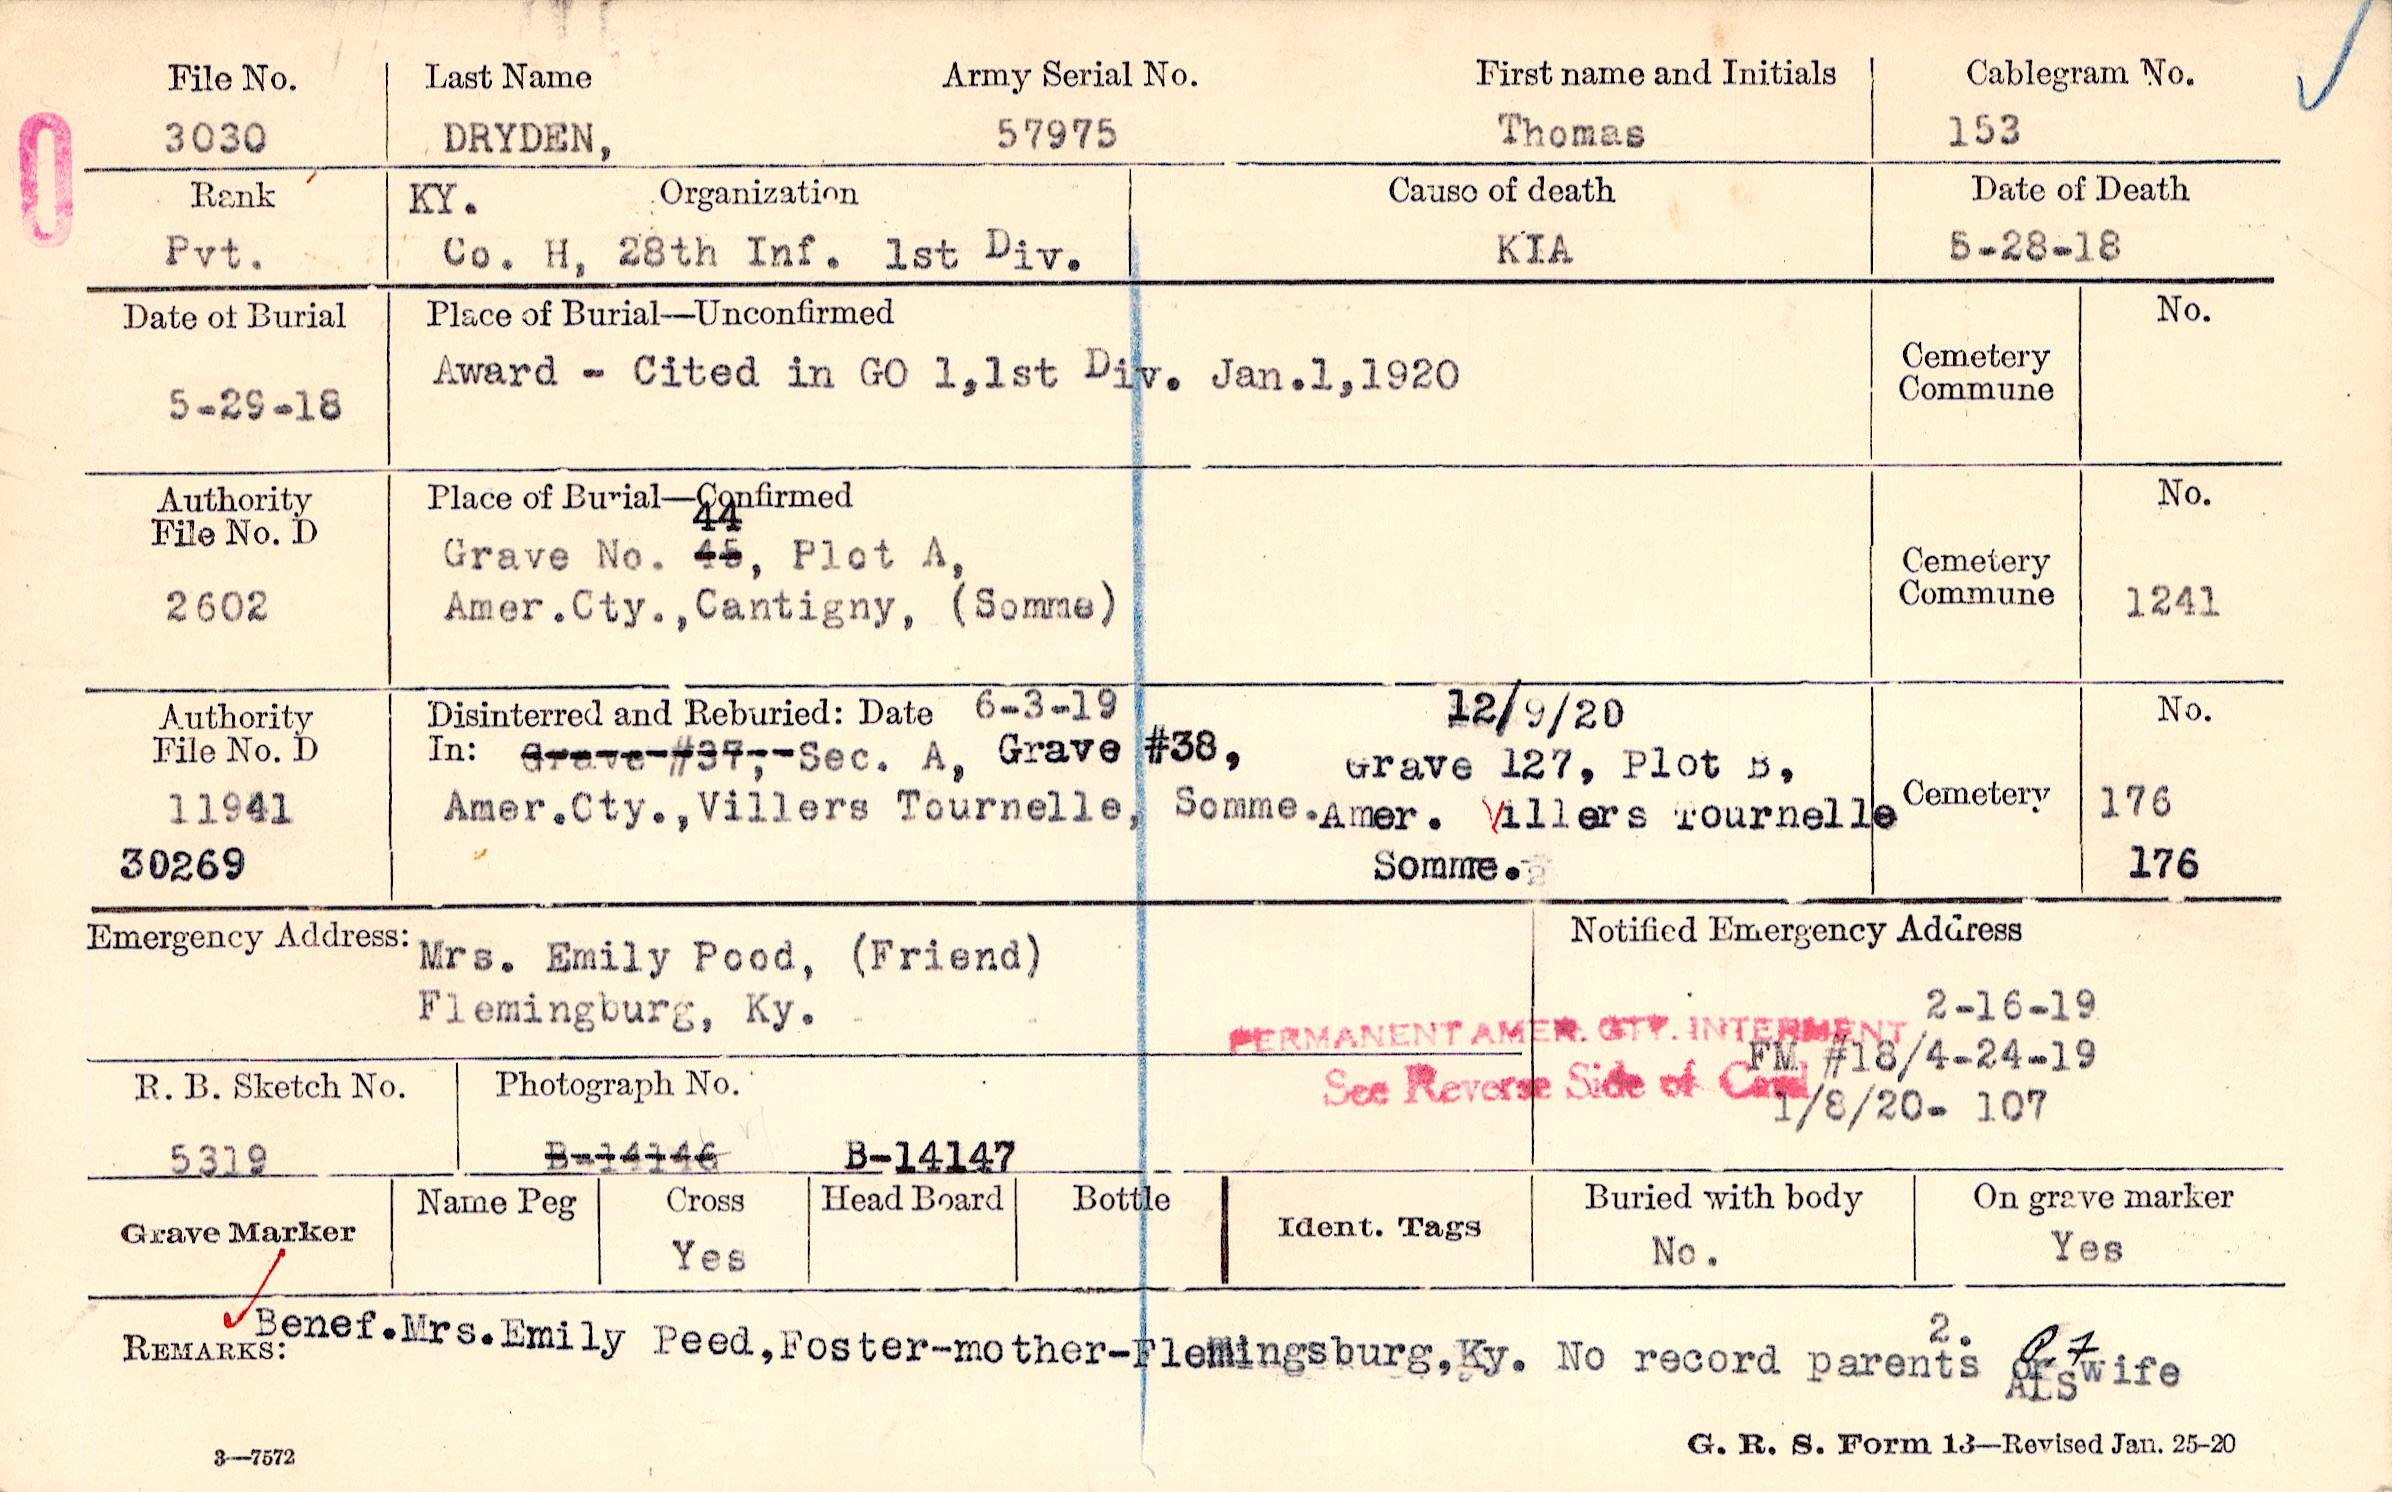 File No. Last Name Army Serial No. First name and Initials Cablegram No.
3030 DRYDEN, 57975 Thomas 153
Rank KY. Organization Cause of death Date of Death
Pvt. Co. H, 28th Inf. 1st Div. KIA 5-28-18
Date of Burial Place of Burial—Unconfirmed No.
Award - Cited in GO 1,1st Div. Jan.1,1920 Cemetery
Commune
5-29-18
Authority Place of Burial—Confirmed No.
File No. D 44
Grave No. 45, Plot A, Cemetery
2602 Amer.Cty.,Cantigny, (Somme) Commune 1241
Authority Disinterred and Reburied: Date 6-3-19 12/9/20 No.
File No. D In: Grave #37, Sec. A, Grave #38, Grave 127, Plot B,
11941 Amer.Cty.,Villers Tournelle, Somme. Amer. Villers Tournelle Cemetery 176
30269 Somme. 176
Emergency Address: Mrs. Emily Pood, (Friend) Notified Emergency Address
Flemingburg, Ky. 2-16-19
PERMANENT AMER. CTY. INTERMENT
FM #18/4-24-19
See Reverse Side of Card
1/8/20- 107
R. B. Sketch No. Photograph No.
5319 B-14146 B-14147
Grave Marker Name Peg Cross Head Board Bottle Ident. Tags Buried with body On grave marker
Yes No. Yes
2.
REMARKS: Benef.Mrs.Emily Peed,Foster-mother-Flemingsburg,Ky. No record parents or wife
ALS
3—7572 G. R. S. Form 13—Revised Jan. 25-20